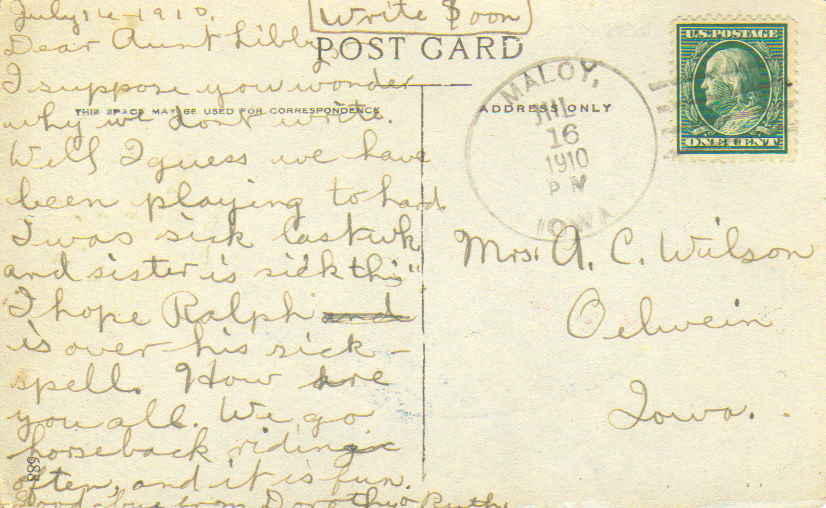 July 14-1910.
Write Soon
Dear Aunt Libby,
POST CARD
I suppose you wonder
THIS SPACE MAY BE USED FOR CORRESPONDENCE
why we dont write.
Well I guess we have
been playing to hard.
I was sick last wk.
and sister is sick this "
I hope Ralph and
is over his sick-
spell. How are
you all. We go
horseback riding
often, and it is fun.
Good-bye from Dorothy & Ruth
688
ADDRESS ONLY
MALOY,
JUL
16
1910
PM
IOWA
U.S. POSTAGE
ONE CENT
Mrs. A. C. Wilson
Oelwein
Iowa.